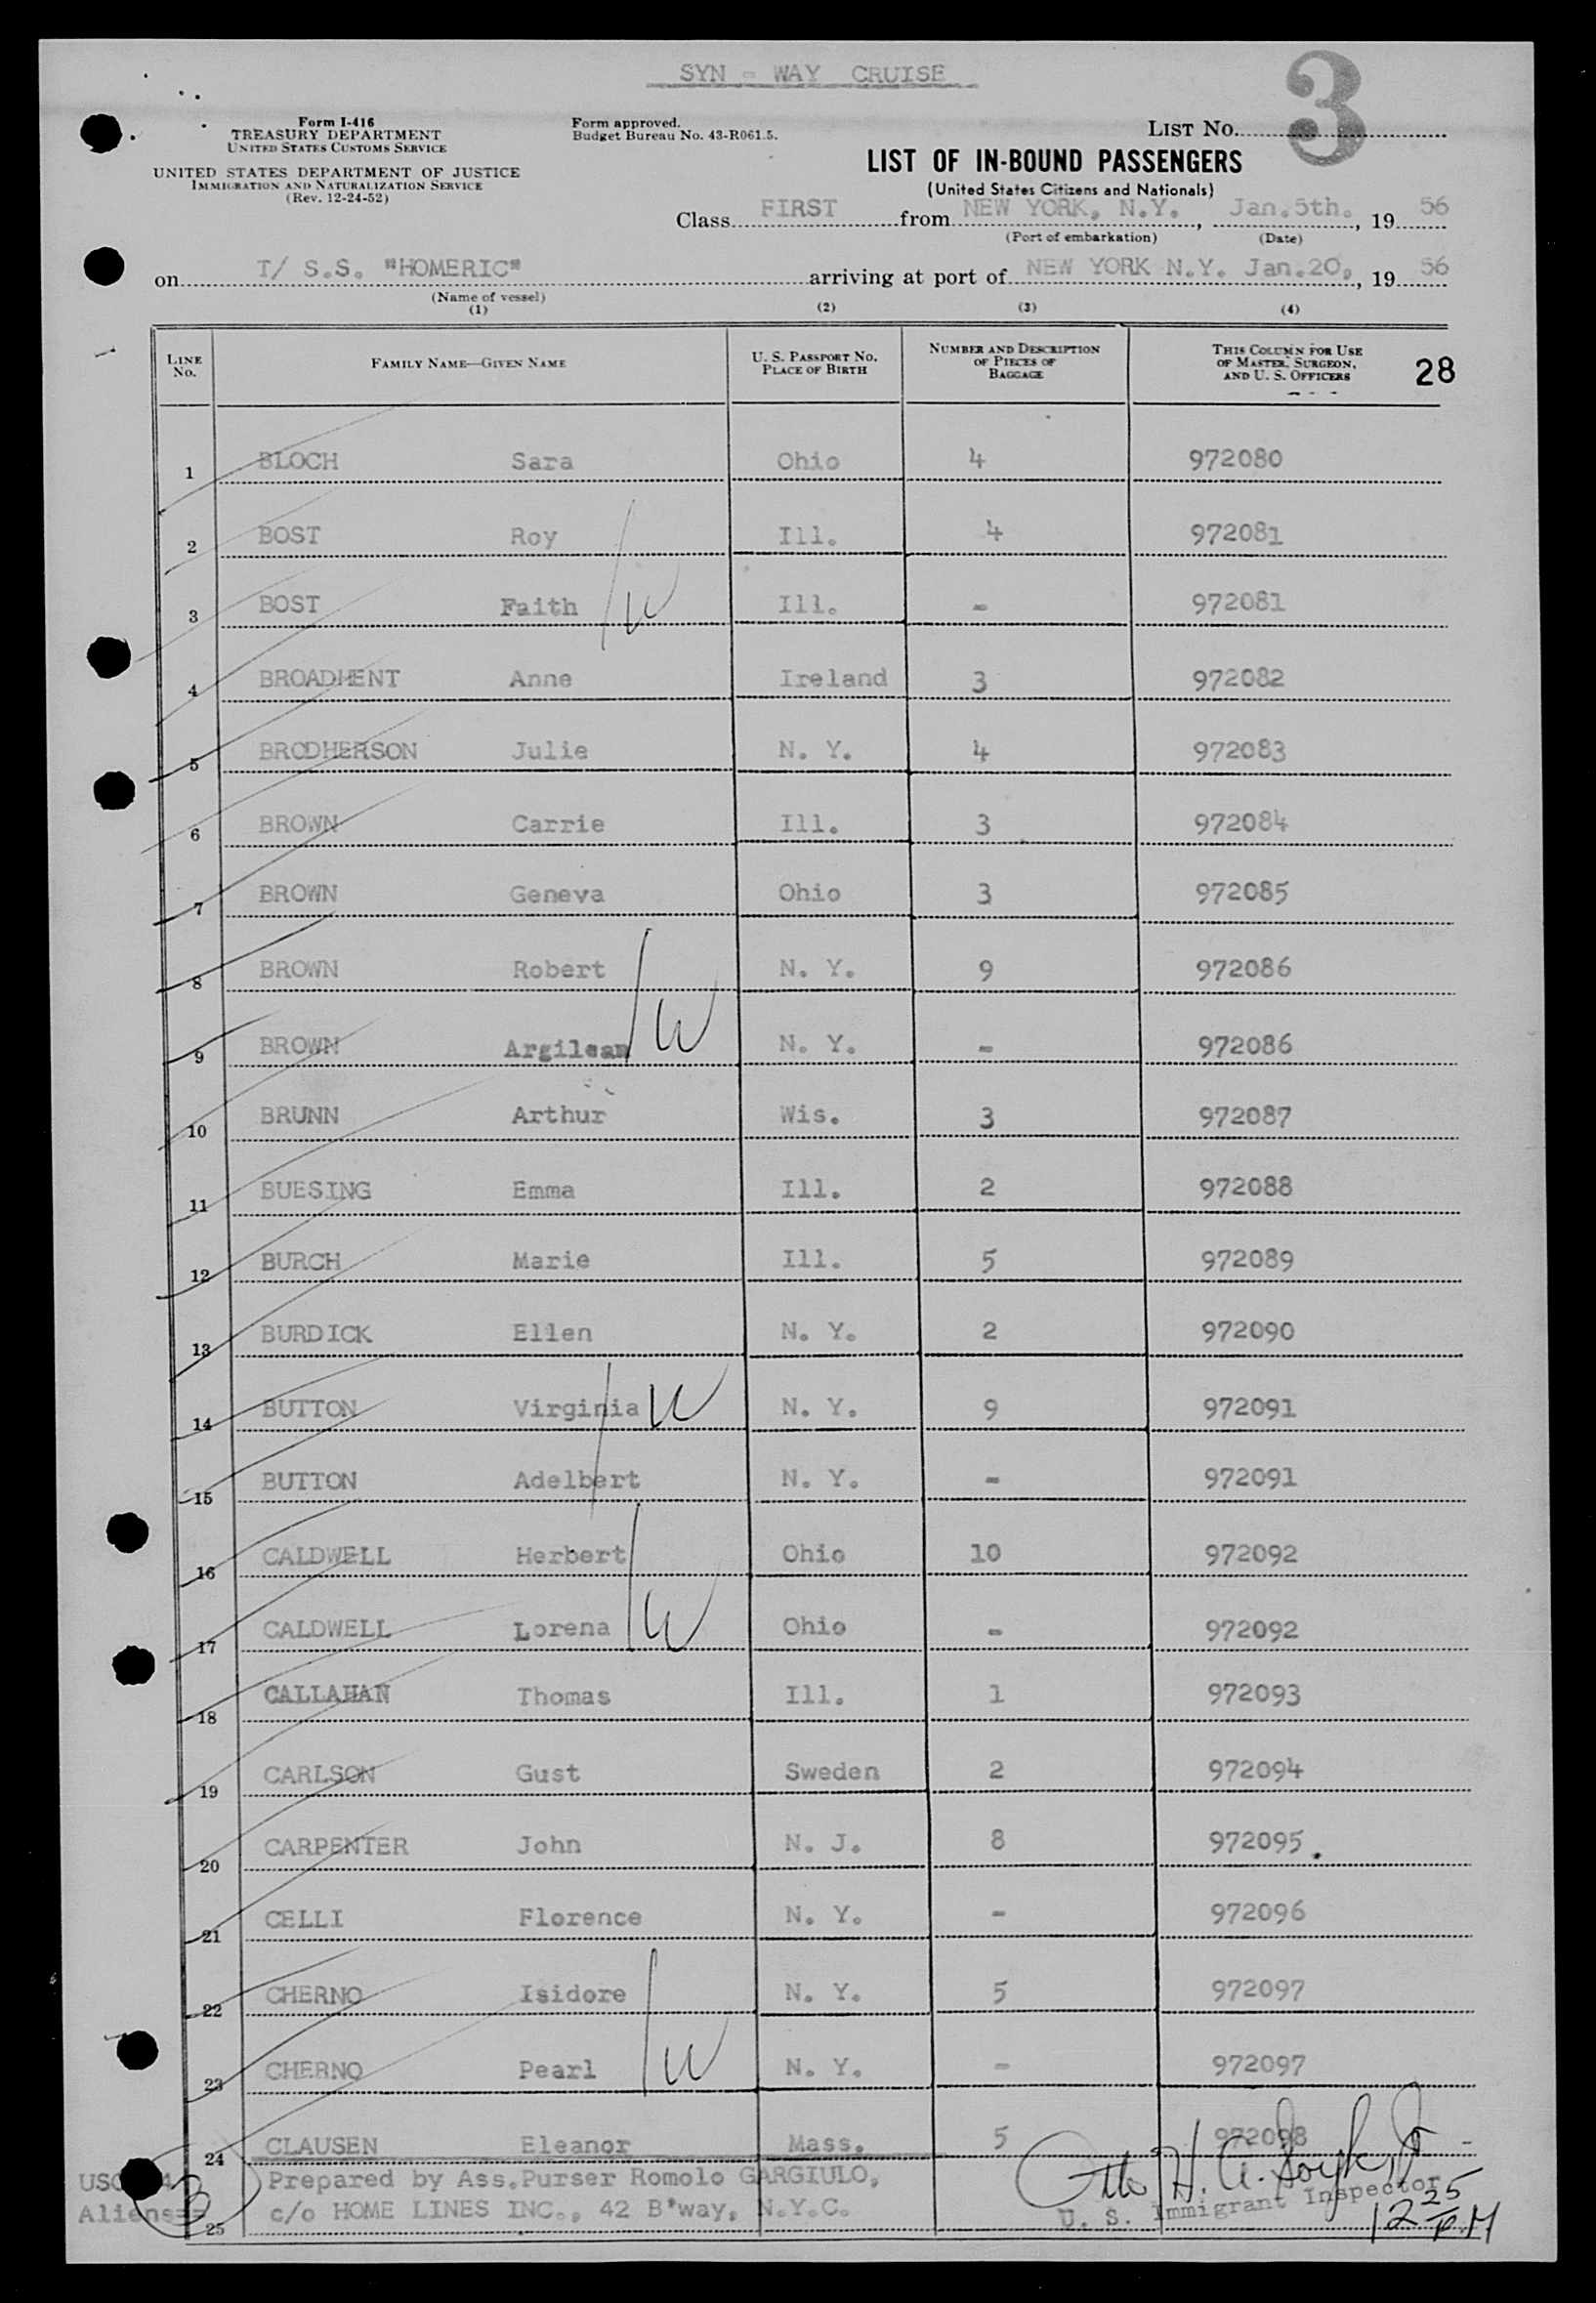 SYN - WAY CRUISE
3
Form I-416
TREASURY DEPARTMENT
UNITED STATES CUSTOMS SERVICE
UNITED STATES DEPARTMENT OF JUSTICE
IMMIGRATION AND NATURALIZATION SERVICE
(Rev. 12-24-52)
Form approved.
Budget Bureau No. 43-R061.5.
LIST No.
LIST OF IN-BOUND PASSENGERS
(United States Citizens and Nationals)
Class FIRST from NEW YORK, N.Y. , Jan.5th. , 19 56
(Port of embarkation) (Date)
on T/ S.S. "HOMERIC" arriving at port of NEW YORK N.Y. Jan.20, , 19 56
(Name of vessel)
(1) (2) (3) (4)
LINE No. FAMILY NAME—GIVEN NAME U. S. PASSPORT No. PLACE OF BIRTH NUMBER AND DESCRIPTION OF PIECES OF BAGGAGE THIS COLUMN FOR USE OF MASTER, SURGEON, AND U. S. OFFICERS 28
1 BLOCH Sara Ohio 4 972080
2 BOST Roy Ill. 4 972081
3 BOST Faith W Ill. - 972081
4 BROADMENT Anne Ireland 3 972082
5 BRODHERSON Julie N. Y. 4 972083
6 BROWN Carrie Ill. 3 972084
7 BROWN Geneva Ohio 3 972085
8 BROWN Robert N. Y. 9 972086
9 BROWN Argilean W N. Y. - 972086
10 BRUNN Arthur Wis. 3 972087
11 BUESING Emma Ill. 2 972088
12 BURCH Marie Ill. 5 972089
13 BURDICK Ellen N. Y. 2 972090
14 BUTTON Virginia W N. Y. 9 972091
15 BUTTON Adelbert N. Y. - 972091
16 CALDWELL Herbert Ohio 10 972092
17 CALDWELL Lorena W Ohio - 972092
18 CALLAHAN Thomas Ill. 1 972093
19 CARLSON Gust Sweden 2 972094
20 CARPENTER John N. J. 8 972095.
21 CELLI Florence N. Y. - 972096
22 CHERNO Isidore N. Y. 5 972097
23 CHERNO Pearl W N. Y. - 972097
24 CLAUSEN Eleanor Mass. 5 972098
Prepared by Ass.Purser Romolo GARGIULO,
Aliens
25 c/o HOME LINES INC., 42 B'way, N.Y.C.
Otto H. A.
U. S. Immigrant Inspector
12 25 P.M